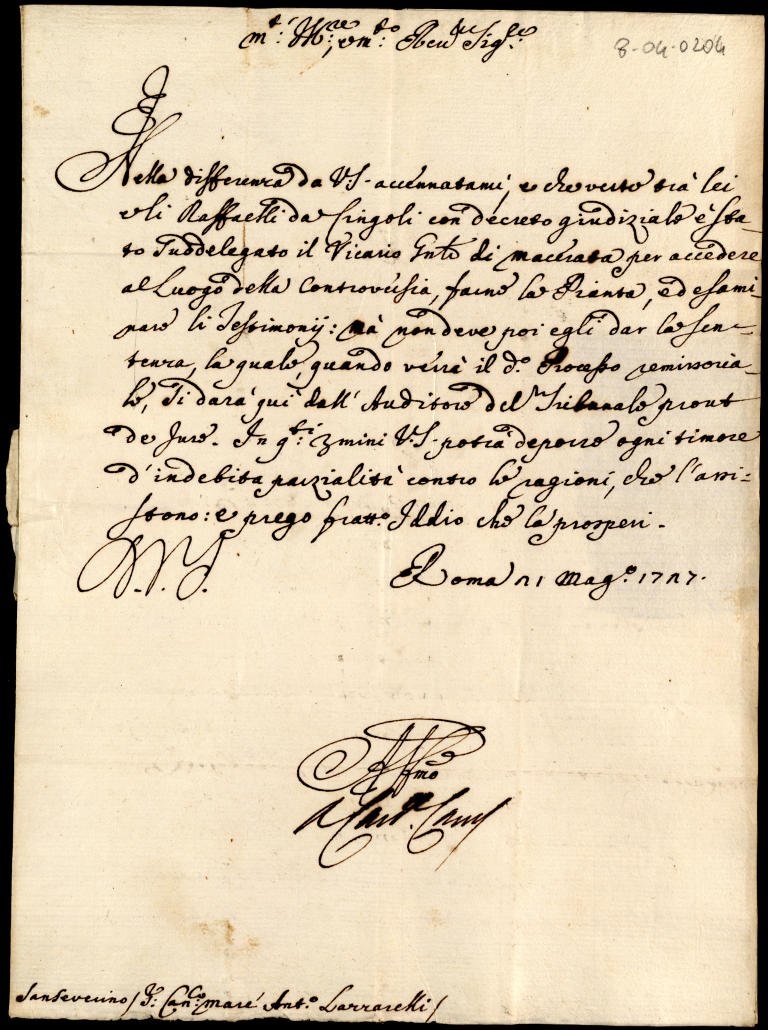 m.t Ill.re, e m.to Rev.do Sig.re
8-04-0204
Nella differenza da VS. accennatami, e che verte trà lei
e li Raffaelli da Cingoli con decreto giudiziale è sta-
to suddelegato il Vicario Gnle di macerata per accedere
al Luogo della Controversia, farne la Pianta, ed esami-
nare li Testimonij: mà non deve poi egli dar la sen-
tenza, la quale, quando verrà il d.o Processo remissoria-
le, si darà qui dall' Auditore del Tribunale prout
de Jure. In q.sti 3mini V.S. potrà deporre ogni timore
d'indebita parzialità contro le ragioni, che l'assi-
stono: e prego fratt.o Iddio che la prosperi.
Roma 21 Mag.o 1727.
Affmo
Card.
Sanseverino / S.r Can.co Ant.o Lazzarelli /